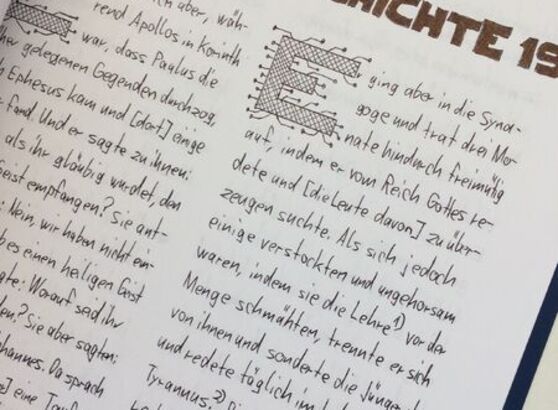 CHICHTE 19
ich aber, wäh-
rend Apollos in Korinth
war, dass Paulus die
her gelegenen Gegenden durchzog,
h Ephesus kam und [dort] einige
fand. Und er sagte zu ihnen:
als ihr gläubig wurdet, den
Geist empfangen? Sie ant-
: Nein, wir haben nicht ein-
b es einen heiligen Geist
gte: Worauf seid ihr
den? Sie aber sagten:
ohannes. Da sprach
eine
Er ging aber in die Syna-
goge und trat drei Mo-
nate hindurch freimütig
auf, indem er vom Reich Gottes re-
dete und [die Leute davon] zu über-
zeugen suchte. Als sich jedoch
einige verstockten und ungehorsam
waren, indem sie die Lehre 1) vor der
Menge schmähten, trennte er sich
von ihnen und sonderte die Jünger
und redete täglich im
Tyrannus. 2)